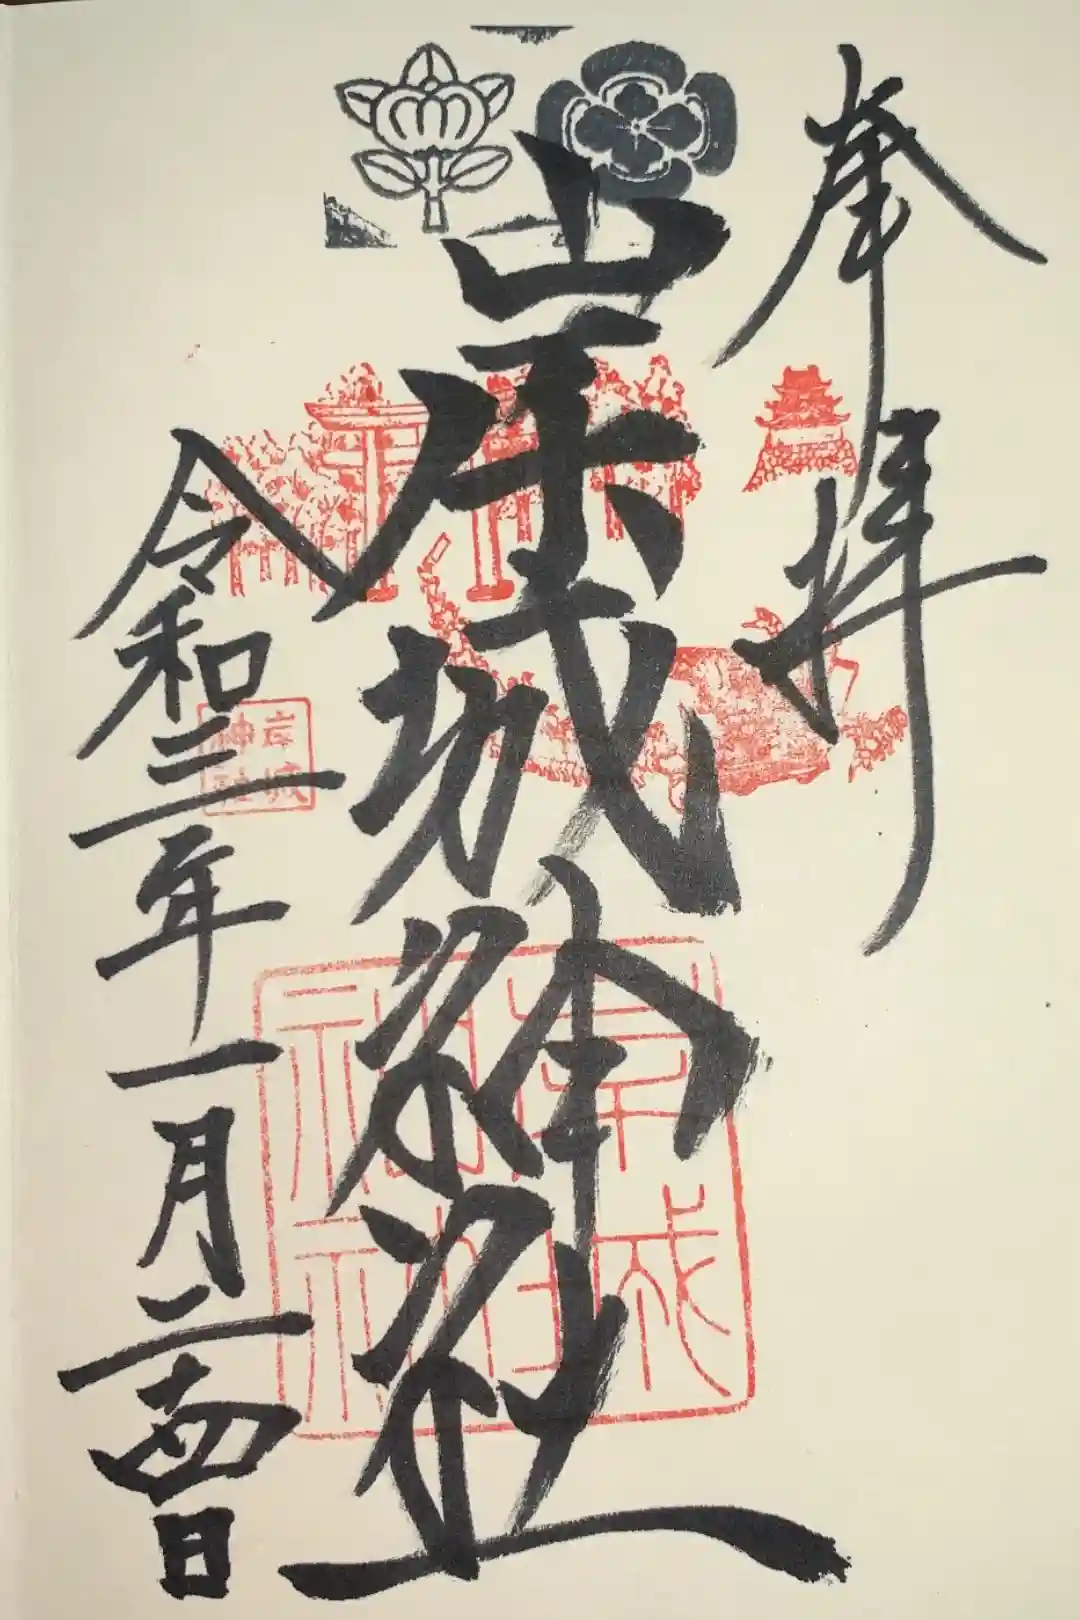 奉拝
岸城神社
岸城
神社
岸城
神社
令和三年一月二十四日